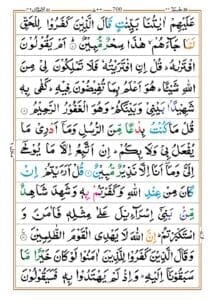 700
عَلَيْهِمْ اٰيٰتُنَا بَيِّنٰتٍ قَالَ الَّذِيْنَ كَفَرُوْا لِلْحَقِّ
لَمَّا جَآءَهُمْ ۙ هٰذَا سِحْرٌ مُّبِيْنٌ ؕ اَمْ يَقُوْلُوْنَ
افْتَرٰىهُ ؕ قُلْ اِنِ افْتَرَيْتُهٗ فَلَا تَمْلِكُوْنَ لِيْ مِنَ
اللّٰهِ شَيْـًٔا ؕ هُوَ اَعْلَمُ بِمَا تُفِيْضُوْنَ فِيْهِ ؕ كَفٰى بِهٖ
شَهِيْدًۢا بَيْنِيْ وَبَيْنَكُمْ ؕ وَهُوَ الْغَفُوْرُ الرَّحِيْمُ
قُلْ مَا كُنْتُ بِدْعًا مِّنَ الرُّسُلِ وَمَاۤ اَدْرِيْ مَا
يُفْعَلُ بِيْ وَلَا بِكُمْ ؕ اِنْ اَتَّبِعُ اِلَّا مَا يُوْحٰۤى
اِلَيَّ وَمَاۤ اَنَا اِلَّا نَذِيْرٌ مُّبِيْنٌ قُلْ اَرَءَيْتُمْ اِنْ
كَانَ مِنْ عِنْدِ اللّٰهِ وَكَفَرْتُمْ بِهٖ وَشَهِدَ شَاهِدٌ
مِّنْۢ بَنِيْۤ اِسْرَآءِيْلَ عَلٰى مِثْلِهٖ فَاٰمَنَ وَ
اسْتَكْبَرْتُمْ ؕ اِنَّ اللّٰهَ لَا يَهْدِي الْقَوْمَ الظّٰلِمِيْنَ
وَقَالَ الَّذِيْنَ كَفَرُوْا لِلَّذِيْنَ اٰمَنُوْا لَوْ كَانَ خَيْرًا مَّا
سَبَقُوْنَاۤ اِلَيْهِ ؕ وَاِذْ لَمْ يَهْتَدُوْا بِهٖ فَسَيَقُوْلُوْنَ